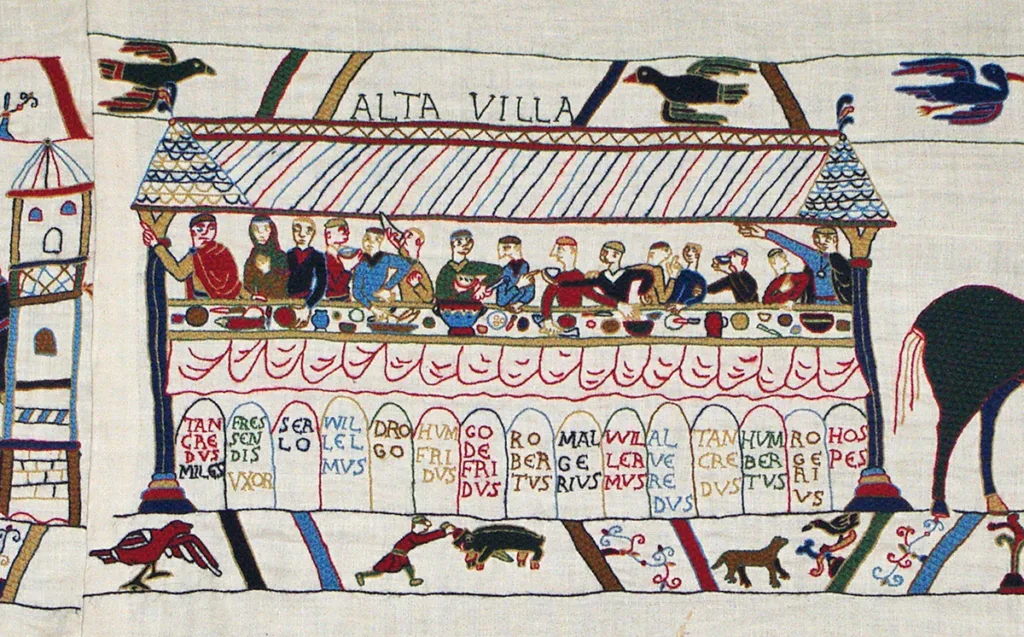 ALTA VILLA
TAN
CRE
DVS
MILES
FRES
SEN
DIS
VXOR
SER
LO
WIL
LEL
MVS
DRO
GO
HVM
FRI
DVS
GO
DE
FRI
DVS
RO
BER
TVS
MAL
GE
RIVS
WIL
MVS
AL
VE
RE
DVS
TAN
CRE
DVS
HVM
BER
TVS
RO
GE
RI
VS
HOS
PES